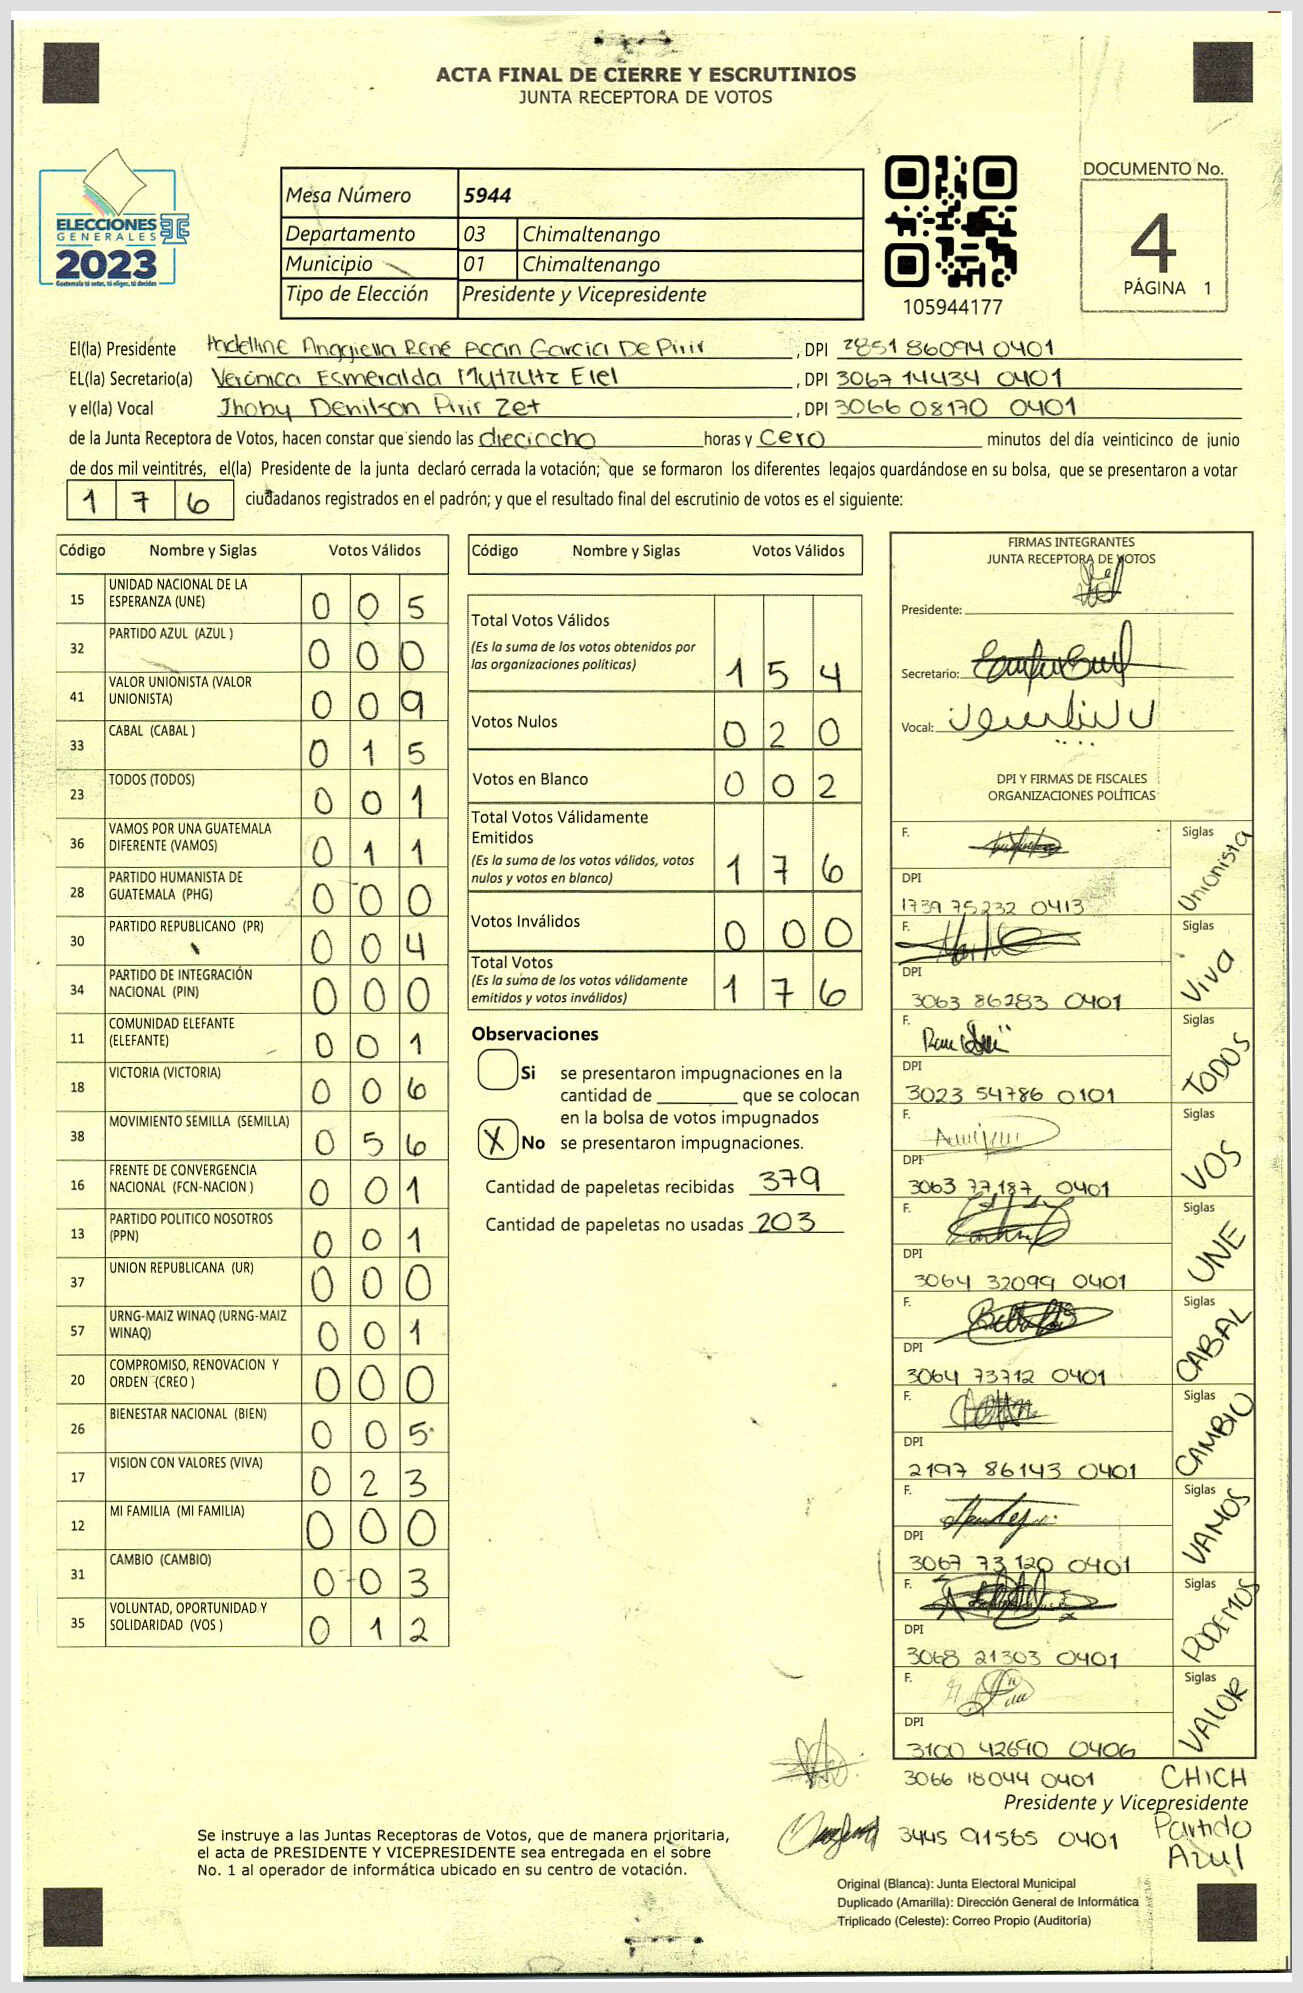 ACTA FINAL DE CIERRE Y ESCRUTINIOS
JUNTA RECEPTORA DE VOTOS
ELECCIONES
GENERALES
2023
Guatemala tú votas, tú eliges, tú decides
Mesa Número 5944
Departamento 03 Chimaltenango
Municipio 01 Chimaltenango
Tipo de Elección Presidente y Vicepresidente
105944177
DOCUMENTO No.
4
PÁGINA 1
El(la) Presidente Anggiella René García De Pirir , DPI 2851 86094 0401
EL(la) Secretario(a) Verónica Esmeralda Mutzutz , DPI 3067 14434 0401
y el(la) Vocal Jhoby Denilson Pirir Zet , DPI 3066 08170 0401
de la Junta Receptora de Votos, hacen constar que siendo las dieciocho horas y cero minutos del día veinticinco de junio
de dos mil veintitrés, el(la) Presidente de la junta declaró cerrada la votación; que se formaron los diferentes legajos guardándose en su bolsa, que se presentaron a votar
1 7 6 ciudadanos registrados en el padrón; y que el resultado final del escrutinio de votos es el siguiente:
Código Nombre y Siglas Votos Válidos
15 UNIDAD NACIONAL DE LA
ESPERANZA (UNE) 0 0 5
32 PARTIDO AZUL (AZUL ) 0 0 0
41 VALOR UNIONISTA (VALOR
UNIONISTA) 0 0 9
33 CABAL (CABAL ) 0 1 5
23 TODOS (TODOS) 0 0 1
36 VAMOS POR UNA GUATEMALA
DIFERENTE (VAMOS) 0 1 1
28 PARTIDO HUMANISTA DE
GUATEMALA (PHG) 0 0 0
30 PARTIDO REPUBLICANO (PR) 0 0 4
34 PARTIDO DE INTEGRACIÓN
NACIONAL (PIN) 0 0 0
11 COMUNIDAD ELEFANTE
(ELEFANTE) 0 0 1
18 VICTORIA (VICTORIA) 0 0 6
38 MOVIMIENTO SEMILLA (SEMILLA) 0 5 6
16 FRENTE DE CONVERGENCIA
NACIONAL (FCN-NACION ) 0 0 1
13 PARTIDO POLITICO NOSOTROS
(PPN) 0 0 1
37 UNION REPUBLICANA (UR) 0 0 0
57 URNG-MAIZ WINAQ (URNG-MAIZ
WINAQ) 0 0 1
20 COMPROMISO, RENOVACION Y
ORDEN (CREO ) 0 0 0
26 BIENESTAR NACIONAL (BIEN) 0 0 5
17 VISION CON VALORES (VIVA) 0 2 3
12 MI FAMILIA (MI FAMILIA) 0 0 0
31 CAMBIO (CAMBIO) 0 0 3
35 VOLUNTAD, OPORTUNIDAD Y
SOLIDARIDAD (VOS ) 0 1 2
Código Nombre y Siglas Votos Válidos
Total Votos Válidos
(Es la suma de los votos obtenidos por
las organizaciones políticas) 1 5 4
Votos Nulos 0 2 0
Votos en Blanco 0 0 2
Total Votos Válidamente
Emitidos
(Es la suma de los votos válidos, votos
nulos y votos en blanco) 1 7 6
Votos Inválidos 0 0 0
Total Votos
(Es la suma de los votos válidamente
emitidos y votos inválidos) 1 7 6
Observaciones
Si se presentaron impugnaciones en la
cantidad de ________ que se colocan
en la bolsa de votos impugnados
X No se presentaron impugnaciones.
Cantidad de papeletas recibidas 379
Cantidad de papeletas no usadas 203
FIRMAS INTEGRANTES
JUNTA RECEPTORA DE VOTOS
Presidente:
Secretario:
Vocal:
DPI Y FIRMAS DE FISCALES
ORGANIZACIONES POLÍTICAS
F. Siglas Unionista
DPI
1739 75232 0413
F. Siglas Viva
DPI
3063 86283 0401
F. Siglas TODOS
DPI
3023 54786 0101
F. Siglas VOS
DPI
3063 77187 0401
F. Siglas UNE
DPI
3064 32099 0401
F. Siglas CABAL
DPI
3064 73712 0401
F. Siglas CAMBIO
DPI
2197 86143 0401
F. Siglas VAMOS
DPI
3067 73120 0401
F. Siglas PODEMOS
DPI
3068 21303 0401
F. Siglas VALOR
DPI
3100 42690 0406
3066 18044 0401 CHICH
Presidente y Vicepresidente
3445 91565 0401 Partido
Azul
Se instruye a las Juntas Receptoras de Votos, que de manera prioritaria,
el acta de PRESIDENTE Y VICEPRESIDENTE sea entregada en el sobre
No. 1 al operador de informática ubicado en su centro de votación.
Original (Blanca): Junta Electoral Municipal
Duplicado (Amarilla): Dirección General de Informática
Triplicado (Celeste): Correo Propio (Auditoría)